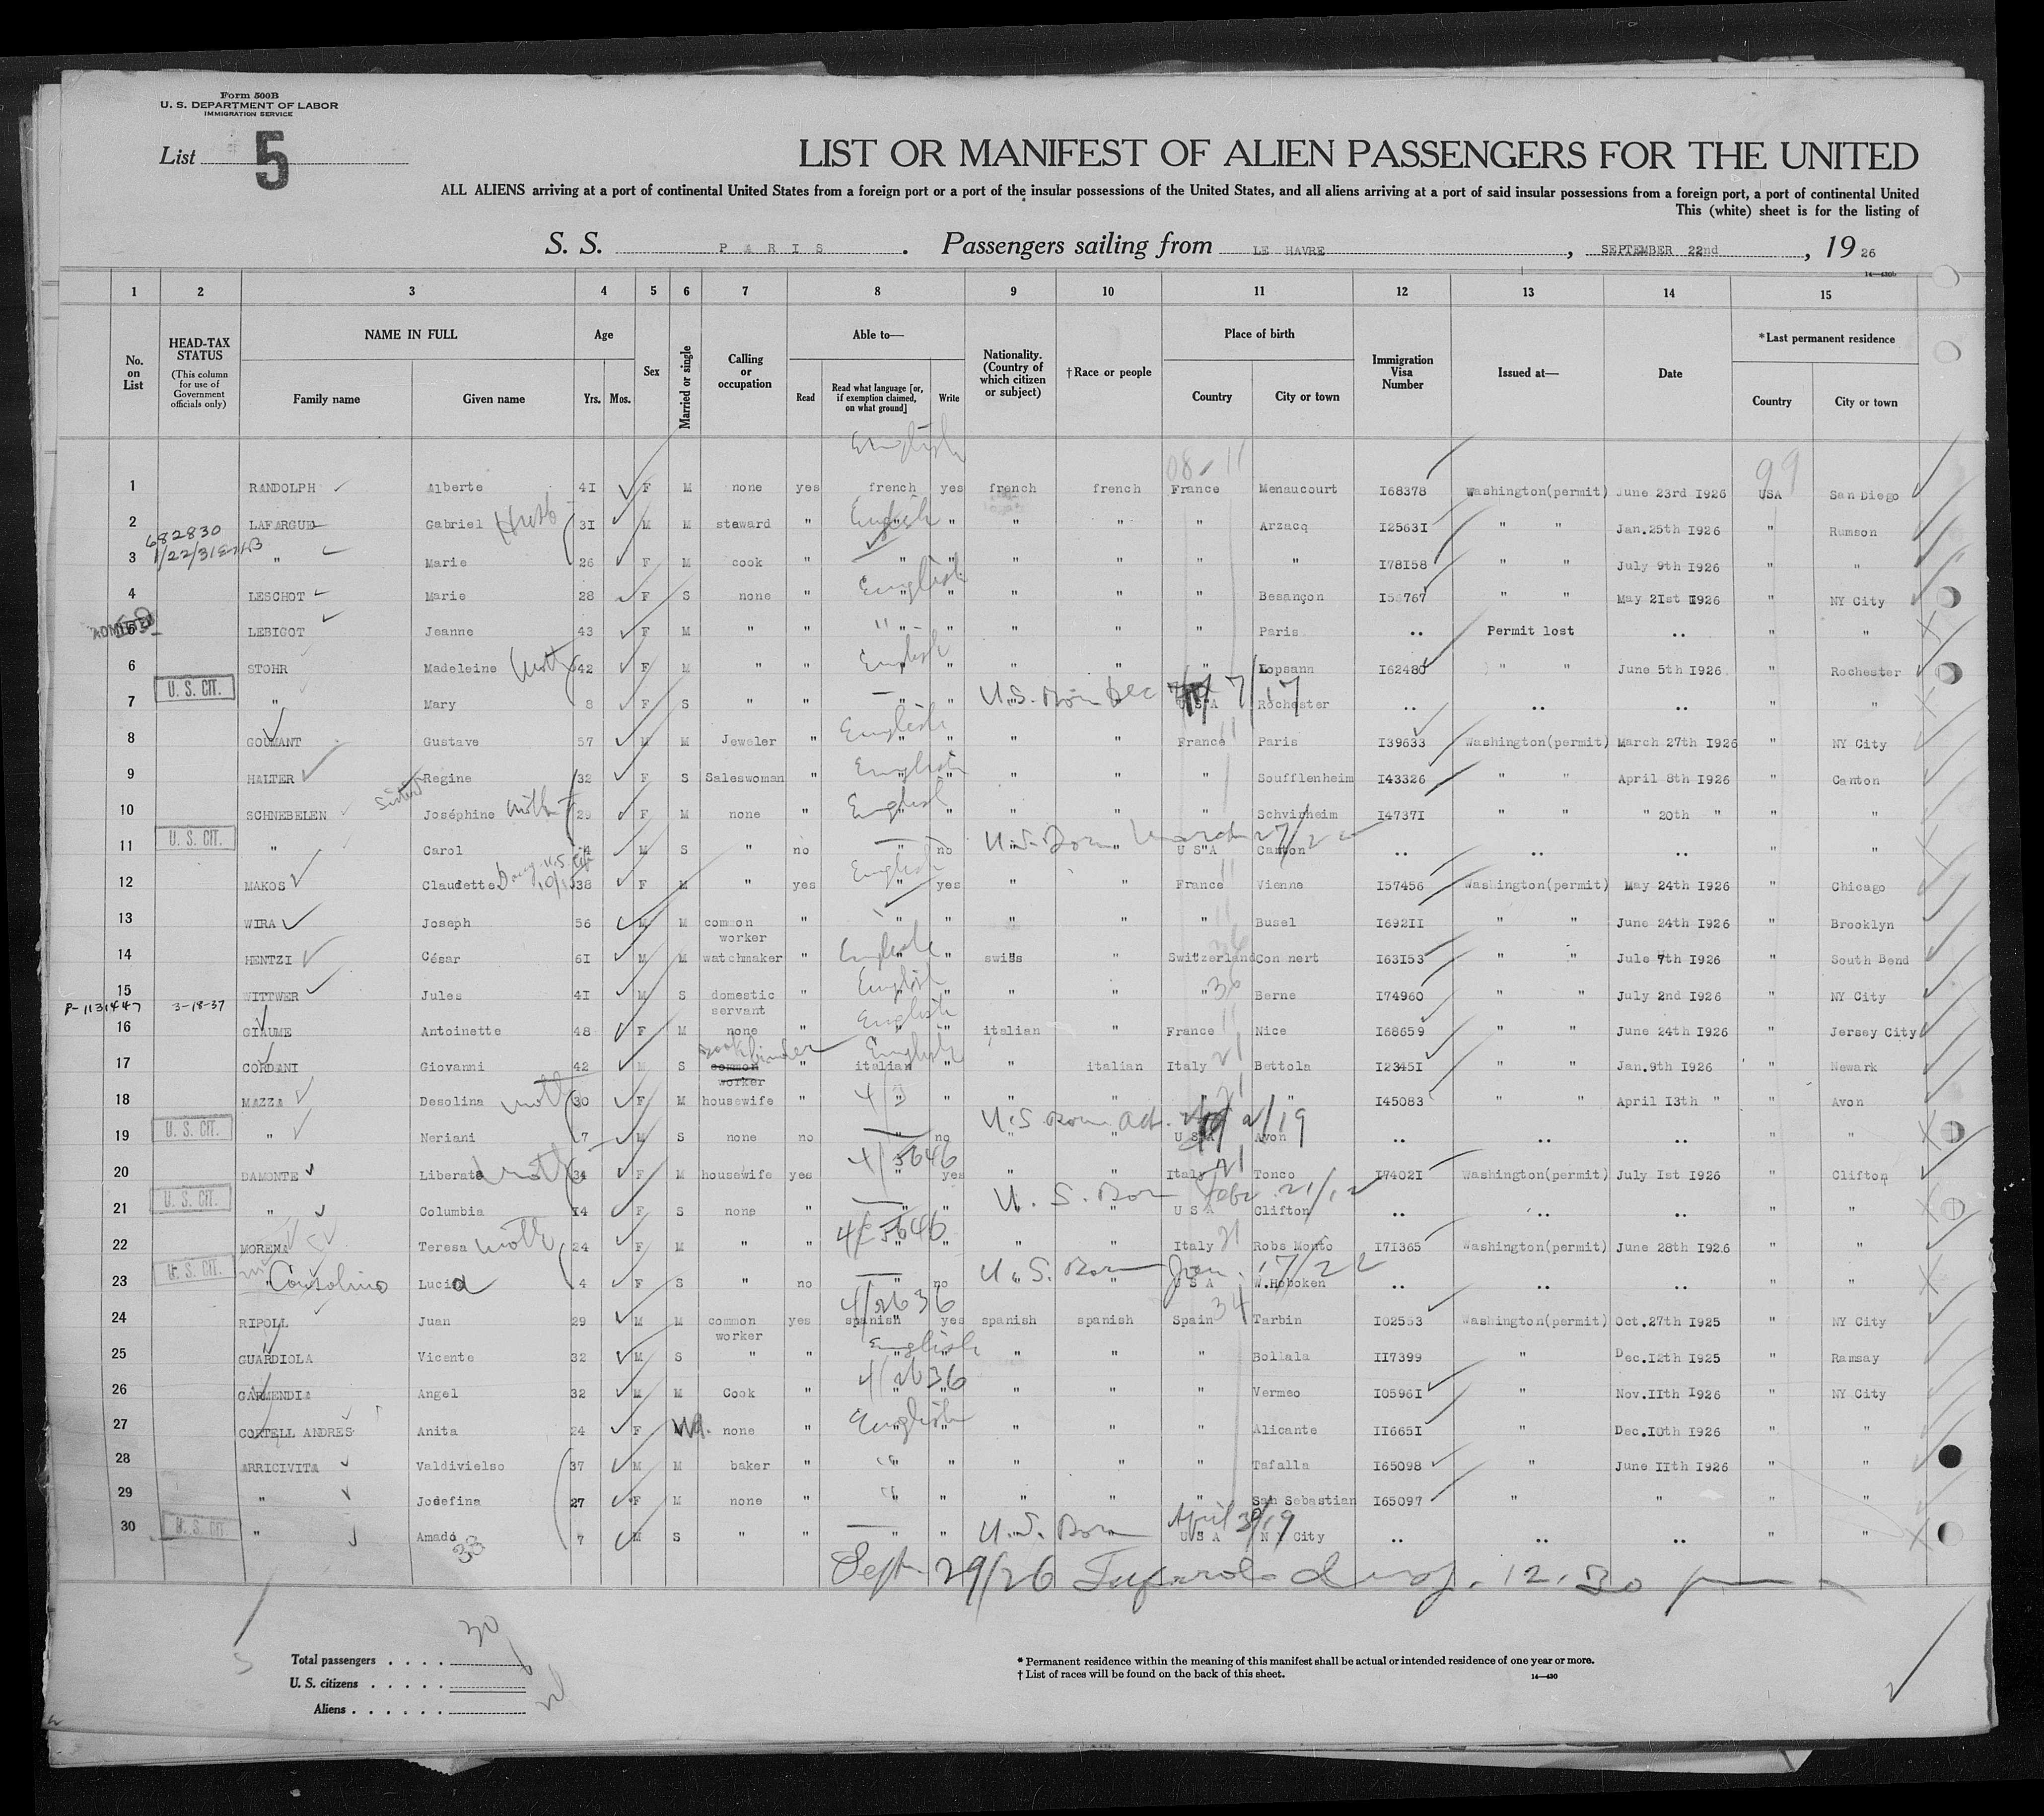 Form 500B
U. S. DEPARTMENT OF LABOR
IMMIGRATION SERVICE
List 5
LIST OR MANIFEST OF ALIEN PASSENGERS FOR THE UNITED
ALL ALIENS arriving at a port of continental United States from a foreign port or a port of the insular possessions of the United States, and all aliens arriving at a port of said insular possessions from a foreign port, a port of continental United
This (white) sheet is for the listing of
S. S. PARIS. Passengers sailing from LE HAVRE, SEPTEMBER 22nd, 19 26
14—430b
1 2 3 4 5 6 7 8 9 10 11 12 13 14 15
No. on List
HEAD-TAX STATUS (This column for use of Government officials only)
NAME IN FULL Family name Given name
Age Yrs. Mos.
Sex
Married or single
Calling or occupation
Able to— Read Read what language [or, if exemption claimed, on what ground] Write
Nationality. (Country of which citizen or subject)
†Race or people
Place of birth Country City or town
Immigration Visa Number
Issued at—
Date
*Last permanent residence Country City or town
English 08/11 99
1 RANDOLPH Alberte 4I F M none yes french yes french french France Menaucourt I68378 Washington(permit) June 23rd I926 USA San Diego
2 LAFARGUE Gabriel 3I M M steward " English " " " " Arzacq I2563I " " Jan.25th I926 " Rumson
682830
1/22/31
3 " Marie 26 F M cook " " " " " " " I78I58 " " July 9th I926 " "
4 LESCHOT Marie 28 F S none " English " " " " Besançon " " May 2Ist I926 " NY City
ADMITTED
5 LEBIGOT Jeanne 43 F M " " " " " " " Paris .. Permit lost .. " "
6 STOHR Madeleine 42 F M " " English " " " " I62480 " " June 5th I926 " Rochester
U. S. CIT.
7 " Mary 8 F S " " — " U.S. Born Dec 7/17 U S A Rochester .. .. .. " "
8 GOUMANT Gustave 57 M M Jeweler " English " " " France 11 Paris I39633 Washington(permit) March 27th I926 " NY City
9 HALTER Sister Regine 32 F S Saleswoman " English " " " " Soufflenheim I43326 " " April 8th I926 " Canton
10 SCHNEBELEN Joséphine 29 F M none " English " " " " Schvirheim I4737I " " " 20th " " "
U. S. CIT.
11 " Carol 4 M S " no — no U.S. Born March 27/22 U S A Canton .. .. .. " "
12 MAKOS Claudette 38 F M " yes English yes " " France 11 Vienne I57456 Washington(permit) May 24th I926 " Chicago
13 WIRA Joseph 56 M M common worker " " " " " " 11 Busel I692II " " June 24th I926 " Brooklyn
14 HENTZI César 6I M M watchmaker " English " swiss " Switzerland 36 I63I53 " " Jule 7th I926 " South Bend
15 WITTWER Jules 4I M S domestic servant " English " " " " 36 Berne I74960 " " July 2nd I926 " NY City
P-1131447 3-18-37
16 GIAUME Antoinette 48 F M none " English " italian " France 11 Nice I68659 " " June 24th I926 " Jersey City
17 CORDANI Giovanni 42 M S common worker bookbinder " italian English " " italian Italy 21 Bettola I2345I " " Jan.9th I926 " Newark
18 MAZZA Desolina moth 30 F M housewife " " " " " " 21 " I45083 " " April I3th " " Avon
U. S. CIT.
19 " Neriani 7 M S none no — no U.S. Born U S A Avon .. .. .. " "
20 DAMONTE Liberata moth 34 F M housewife yes " yes " " Italy 21 Tonco I7402I Washington(permit) July Ist I926 " Clifton
U. S. CIT.
21 " Columbia I4 F S none " — " U. S. Born 21/12 U S A Clifton .. .. .. " "
22 MORENA Teresa moth 24 F M " " " " " " Italy 21 Robs Monto I7I365 Washington(permit) June 28th I926 " "
U. S. CIT.
23 " Consolino Lucia 4 F S " no — no U.S. Born Jan. 17/22 U S A W.Hoboken .. .. .. " "
24 RIPOLL Juan 29 M M common worker yes spanish yes spanish spanish Spain 34 Tarbin I02553 Washington(permit) Oct.27th I925 " NY City
25 GUARDIOLA Vicente 32 M S " " English " " " " Bollala II7399 " Dec.I2th I925 " Ramsay
26 GARMENDIA Angel 32 M M Cook " " " " " " Vermeo I0596I " Nov.IIth I926 " NY City
27 CORTELL ANDRES Anita 24 F Wd. none " English " " " " Alicante II665I " Dec.I0th I926 " "
28 ARRICIVITA Valdivielso 37 M M baker " " " " " " Tafalla I65098 " June IIth I926 " "
29 " Josefina 27 F M none " " " " " " San Sebastian I65097 " " " "
U. S. CIT.
30 " Amado 7 M S " " — " U.S. Born April 30/19 U S A N Y City .. .. .. " "
38
Sept 29/26 12.30 pm
Total passengers . . . . 30
U. S. citizens . . . . .
Aliens . . . . . .
* Permanent residence within the meaning of this manifest shall be actual or intended residence of one year or more.
† List of races will be found on the back of this sheet.
14—430